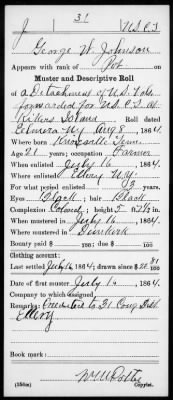 31
J U.S.C.T.
George W. Johnson
Appears with rank of Pvt
Muster and Descriptive Roll
of a Detachment of U.S. Vols.
forwarded for U.S.C.T. at
Rikers Island Roll dated
Elmira N.Y. Aug 8, 1864.
Where born Tenn.
Age 21 years; occupation Farmer
When enlisted July 16, 1864.
Where enlisted Ellery N.Y.
For what period enlisted 3 years.
Eyes Black; hair Black
Complexion Colored; height 5 ft. 7½ in.
When mustered in July 16, 1864.
Where mustered in Dunkirk
Bounty paid $ 100; due $ 100
Clothing account:
Last settled July 16, 1864; drawn since $ 100
Date of first muster July 16, 1864.
Company to which assigned
Remarks: Credited to 31 Cong Dist
Ellery
Book mark:
(356m) Copyist.